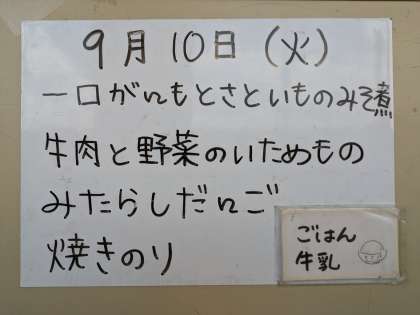 9月10日(火)
一口がんもとさといものみそ煮
牛肉と野菜のいためもの
みたらしだんご
焼きのり
ごはん
牛乳